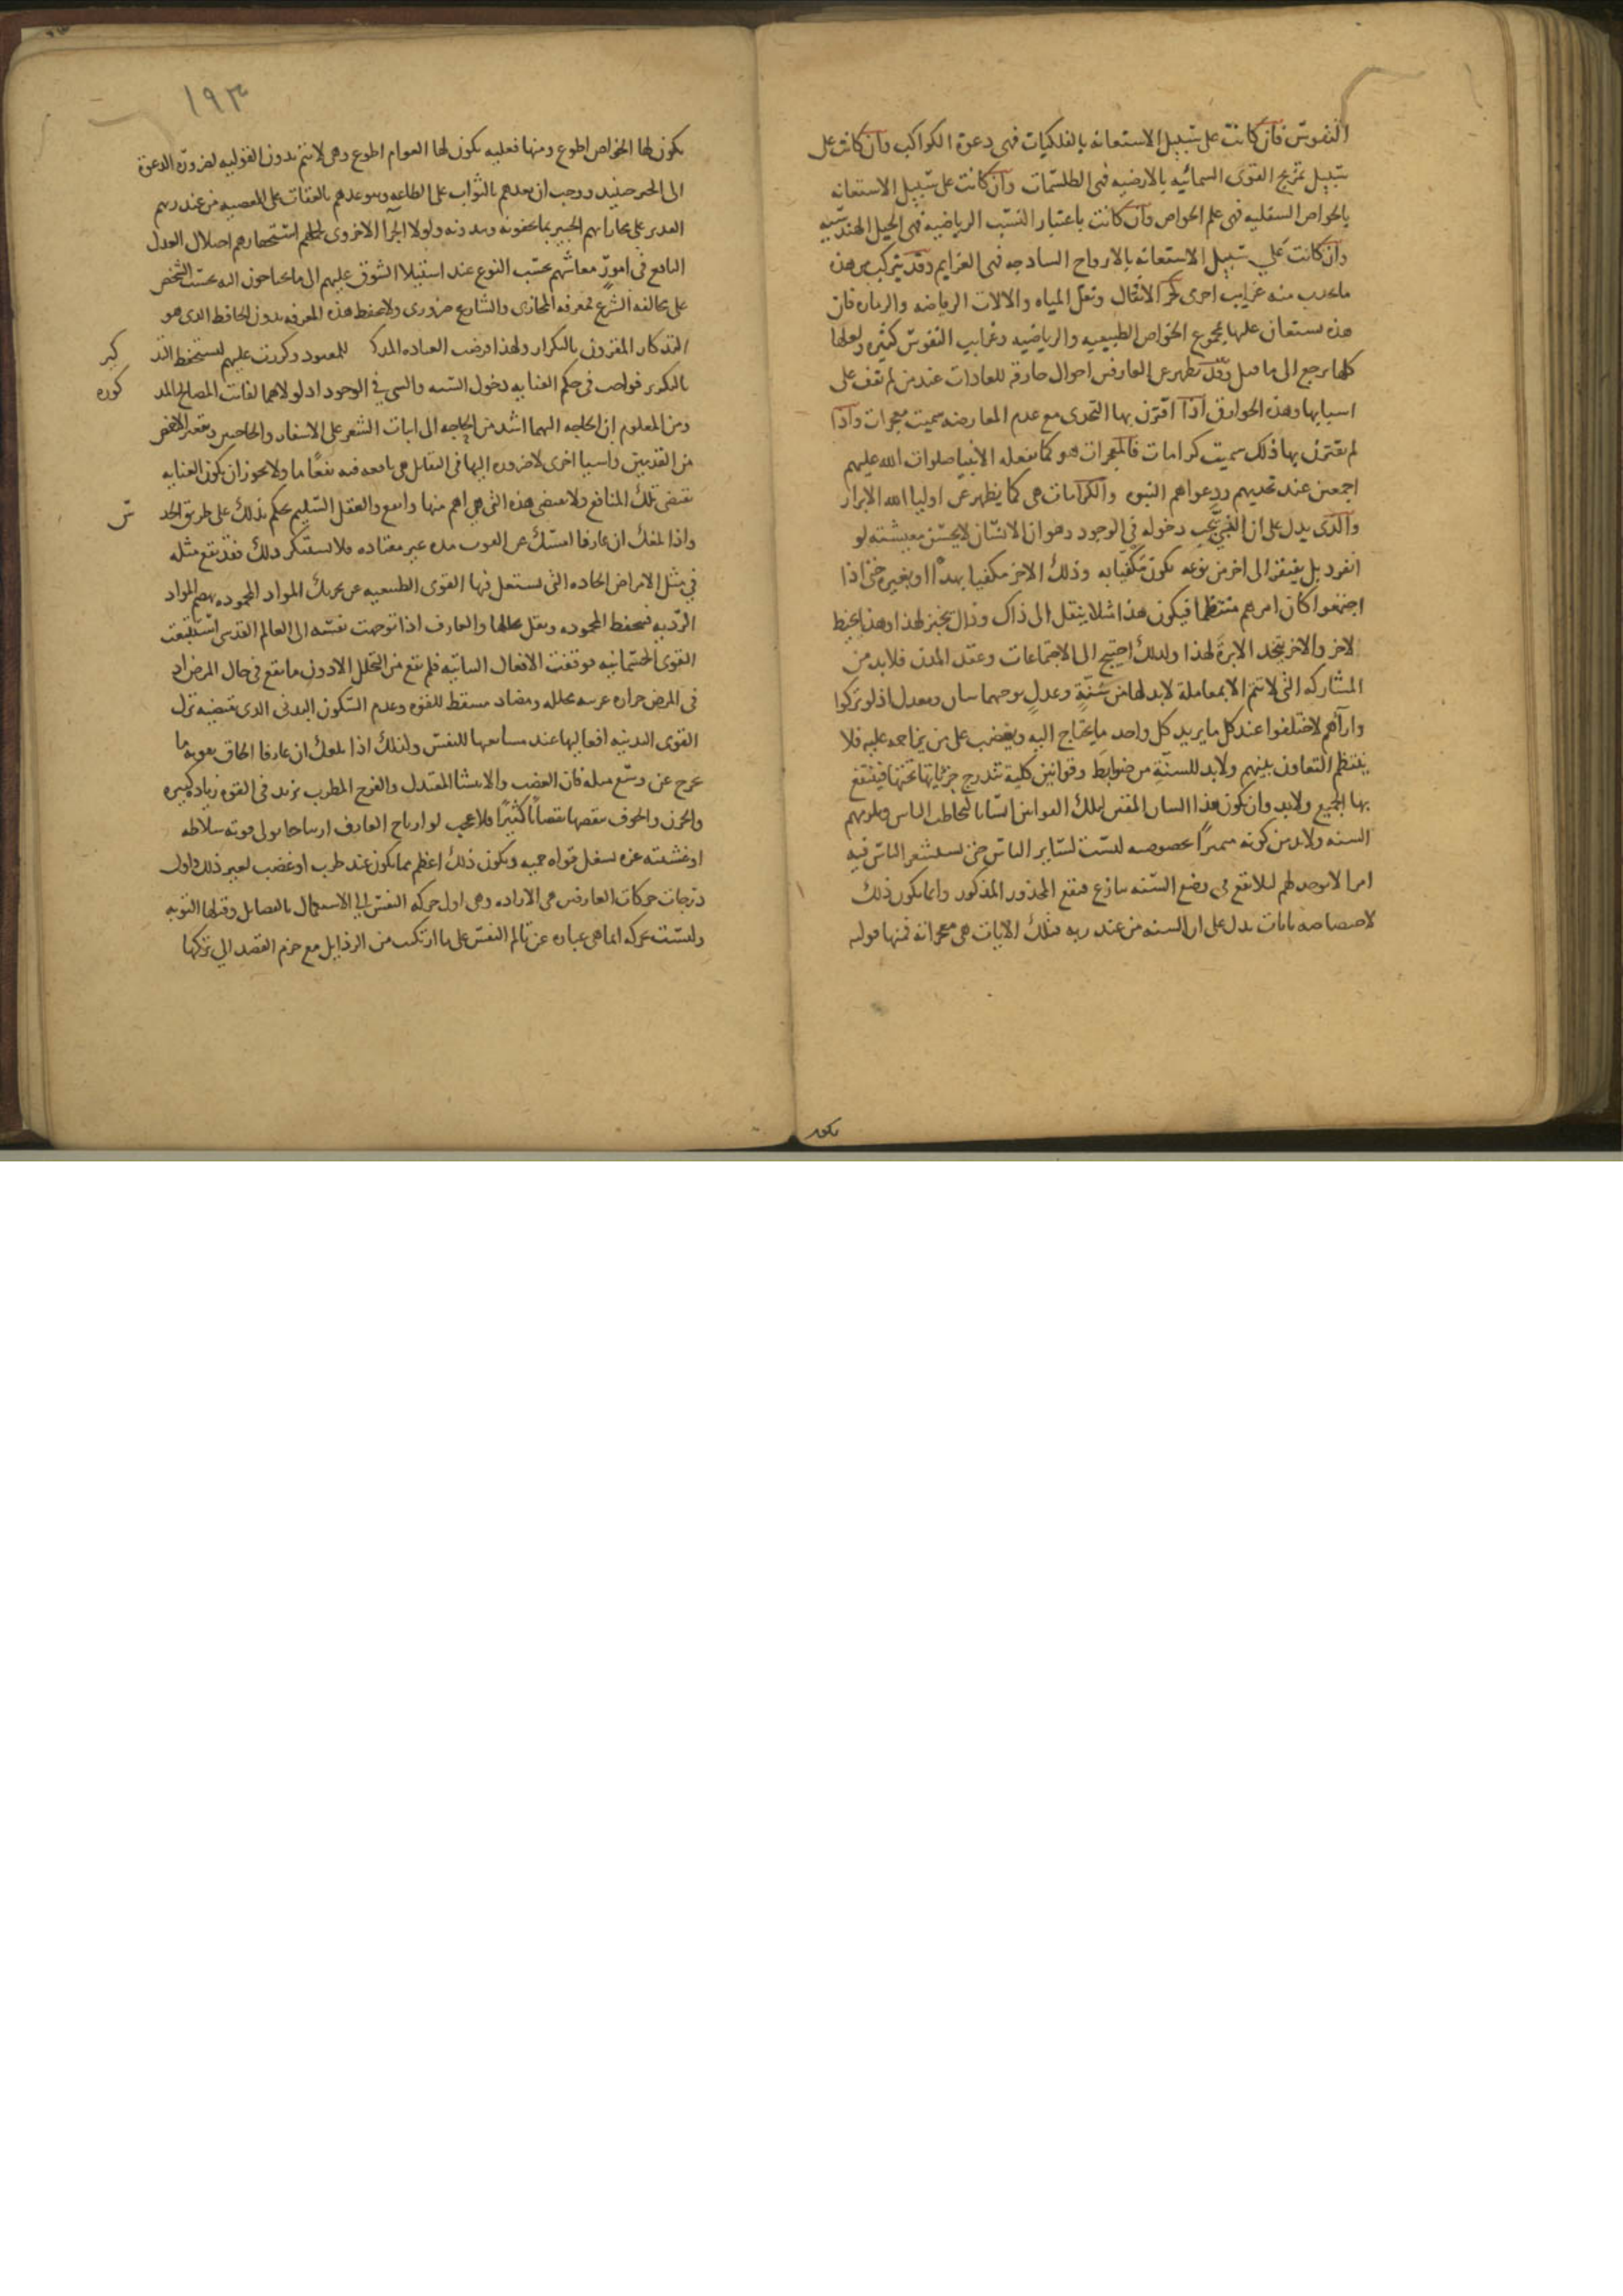 النفوس فان كانت على سبيل الاستعانه بالفلكيات فهى دعوة الكواكب وان كانت على
سبيل تمزيج القوى السمائيه بالارضيه فهى الطلسمات وان كانت على سبيل الاستعانه
بالخواص السفليه فهى علم الخواص وان كانت باعتبار النسب الرياضيه فهى الحيل الهندسيه
وان كانت على سبيل الاستعانه بالارواح الساذجه فهى العزايم وقد يتركب من هذه
ما يحدث منه غرايب اخرى كجر الاثقال ونقل المياه والالات الرياضه والزمان فان
هذه يستعان عليها بمجموع الخواص الطبيعيه والرياضيه وغرايب النفوس كثيره ولعلها
كلها يرجع الى ما قبل وقد يظهر عن العارفين احوال خارقه للعادات عند من لم يقف على
اسبابها وهذه الخوارق اذا اقترن بها التحدى مع عدم المعارضه سميت معجزات واذا
لم يقترن بها ذلك سميت كرامات فالمعجزات هو كما يفعله الانبيا صلوات الله عليهم
اجمعين عند تحديهم ودعواهم النبوه والكرامات هى كما يظهر عن اوليا الله الابرار
والذى يدل على ان النبى يجب دخوله فى الوجود وهو ان الانسان لا يحسن معيشته لو
انفرد بل يفتقر الى اخر من نوعه يكون مكفيا به وذلك الاخر مكفيا بهذا او بغيره حتى اذا
اجتمعوا كان امرهم منتظما فيكون هذا مثلا ينقل الى ذاك وذاك يخبز لهذا وهذا يخيط
لاخر والاخر يتخذ الابرة لهذا ولذلك احتيج الى الاجتماعات وعقد المدن فلا بد من
المشاركه التى لا تتم الا بمعاملة لا بد لها من سنة وعدل يوجبهما سان ومعدل اذ لو تركوا
وارآهم لاختلفوا عند كل ما يريد كل واحد ما يحتاج اليه ويغضب على من يزاحمه عليه فلا
ينتظم التعاون بينهم ولا بد للسنة من ضوابط وقوانين كلية تندرج جزئياتها تحتها فينتفع
بها الجميع ولا بد وان يكون هذا السان المقنن لتلك القوانين انسانا ليخاطب الناس ويلزمهم
السنه ولا بد من كونه متميزًا بخصوصيه ليست لساير الناس حتى يستشعر الناس فيه
امرا لا يوجد لهم ليلا يقع فى وضع السنه تنازع فيقع المحذور المذكور وانما يكون ذلك
لاختصاصه بايات تدل على ان السنه من عند ربه فتلك الايات هى معجزاته فمنها قوليه
تكون
١٩٣
يكون لها الخواص اطوع ومنها فعليه يكون لها العوام اطوع وهى لا تتم بدون القوليه لضرورة الدعوة
الى الخير حينئذ ووجب ان يعدهم بالثواب على الطاعه ويوعدهم بالعقاب على المعصيه من عند ربهم
القدير على مجازاتهم الخبير بما يخفونه ويبدونه ولولا الجزآ الاخروى لحملهم استحقارهم اختلال العدل
النافع فى امور معاشهم بحسب النوع عند استيلا الشوق عليهم الى ما يحتاجون اليه بحسب الشخص
على مخالفه الشرع فمعرفه المجازى والشارع ضرورى ولا تحفظ هذه المعرفه بدون الحافظ الذى هو
التذكار المقرون بالتكرار ولهذا فرضت العباده المذكره للمعبود وكررت عليهم ليستحفظ التذكير
بالتكرير فواجب فى حكم العنايه دخول السنه والنبى فى الوجود اذ لولاهما لفاتت المصالح المذكوره
ومن المعلوم ان الحاجه اليهما اشد من الحاجه الى انبات الشعر على الاشفار والحاجبين وتقعير الاخمص
من القدمين واشيا اخرى لا ضروره اليها فى البقا بل هى نافعه فيه نفعًا ما ولا يجوز ان يكون العنايه
تقتضى تلك المنافع ولا تقتضى هذه التى هى اهم منها وانفع والعقل السليم يحكم بذلك على طريق الحدس
واذا بلغك ان عارفا امسك عن القوت مده غير معتاده فلا تستنكر ذلك فقد يقع مثله
فى مثل الامراض الحاده التى تشتغل فيها القوى الطبيعيه عن تحريك المواد المحموده بهضم المواد
الرديه فتحفظ المحموده ويقل تحللها والعارف اذا توجهت نفسه الى العالم القدسى استتبعت
القوى الجسمانيه فوقفت الافعال النباتيه فلم يقع من التحلل الا دون ما يقع فى حال المرض اذ
فى المرض حراره غريبه محلله ومضاد مسقط للقوه وعدم السكون البدنى الذى يقتضيه ترك
القوى البدنيه افعالها عند مشايعتها للنفس ولذلك اذا بلغك ان عارفا اطاق بقوته ما
يخرج عن وسع مثله فان الغضب والانتشا المعتدل والفرح المطرب يزيد فى القوه زياده كثيره
والحزن والخوف ينقصها نقصانًا كثيرًا فلا عجب لو ارتاح العارف ارتياحا يولى قوته سلاطه
او غشيته عزه تشغل قواه حميه ويكون ذلك اعظم مما يكون عند طرب او غضب لغير ذلك واول
درجات حركات العارفين هى الاراده وهى اول حركه النفس الى الاستكمال بالفضايل وقبلها التوبه
وليست بحركه انما هى عباره عن تالم النفس على ما ارتكبت من الرذايل مع جزم القصد الى تركها